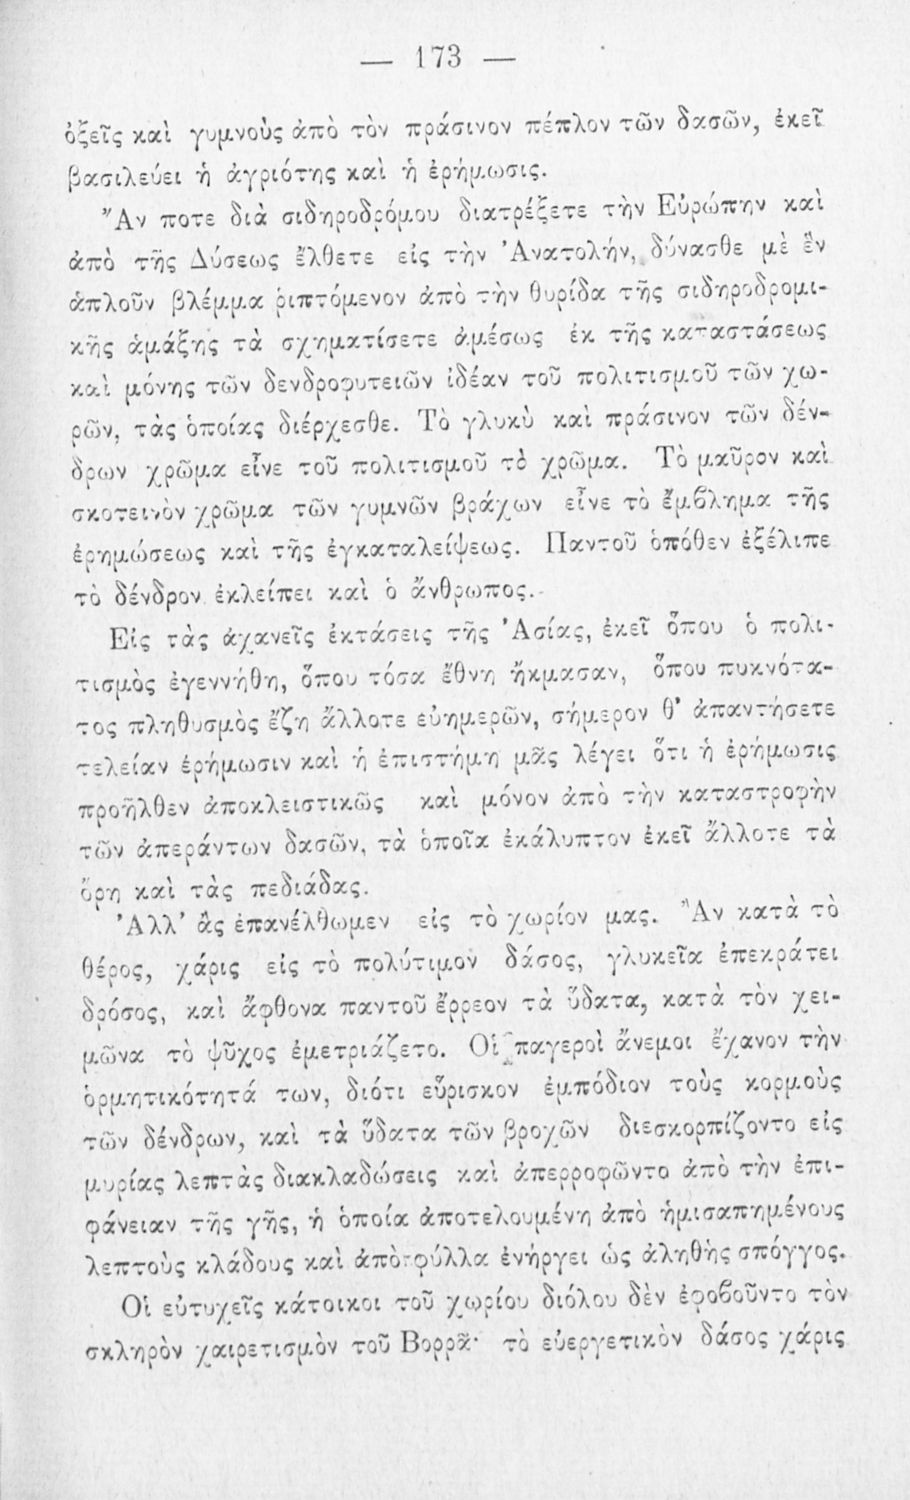 — 173 —
ὀξεῖς καὶ γυμνοὺς ἀπὸ τὸν πράσινον πέπλον τῶν δασῶν, ἐκεῖ
βασιλεύει ἡ ἀγριότης καὶ ἡ ἐρήμωσις.
Ἄν ποτε διὰ σιδηροδρόμου διατρέξετε τὴν Εὐρώπην καὶ
ἀπὸ τῆς Δύσεως ἔλθετε εἰς τὴν Ἀνατολήν, δύνασθε μὲ ἓν
ἁπλοῦν βλέμμα ῥιπτόμενον ἀπὸ τὴν θυρίδα τῆς σιδηροδρομι-
κῆς ἁμάξης τὰ σχηματίσετε ἀμέσως ἐκ τῆς καταστάσεως
καὶ μόνης τῶν δενδροφυτειῶν ἰδέαν τοῦ πολιτισμοῦ τῶν χω-
ρῶν, τὰς ὁποίας διέρχεσθε. Τὸ γλυκὺ καὶ πράσινον τῶν δέν-
δρων χρῶμα εἶνε τοῦ πολιτισμοῦ τὸ χρῶμα. Τὸ μαῦρον καὶ
σκοτεινὸν χρῶμα τῶν γυμνῶν βράχων εἶνε τὸ ἔμβλημα τῆς
ἐρημώσεως καὶ τῆς ἐγκαταλείψεως. Παντοῦ ὁπόθεν ἐξέλιπε
τὸ δένδρον ἐκλείπει καὶ ὁ ἄνθρωπος.
Εἰς τὰς ἀχανεῖς ἐκτάσεις τῆς Ἀσίας, ἐκεῖ ὅπου ὁ πολι-
τισμὸς ἐγεννήθη, ὅπου τόσα ἔθνη ἤκμασαν, ὅπου πυκνότα-
τος πληθυσμὸς ἔζη ἄλλοτε εὐημερῶν, σήμερον θ' ἀπαντήσετε
τελείαν ἐρήμωσιν καὶ ἡ ἐπιστήμη μᾶς λέγει ὅτι ἡ ἐρήμωσις
προῆλθεν ἀποκλειστικῶς καὶ μόνον ἀπὸ τὴν καταστροφὴν
τῶν ἀπεράντων δασῶν, τὰ ὁποῖα ἐκάλυπτον ἐκεῖ ἄλλοτε τὰ
ὄρη καὶ τὰς πεδιάδας.
Ἀλλ' ἂς ἐπανέλθωμεν εἰς τὸ χωρίον μας. Ἂν κατὰ τὸ
θέρος, χάρις εἰς τὸ πολύτιμον δάσος, γλυκεῖα ἐπεκράτει
δρόσος, καὶ ἄφθονα παντοῦ ἔρρεον τὰ ὕδατα, κατὰ τὸν χει-
μῶνα τὸ ψῦχος ἐμετριάζετο. Οἱ παγεροὶ ἄνεμοι ἔχανον τὴν
ὁρμητικότητά των, διότι εὕρισκον ἐμπόδιον τοὺς κορμοὺς
τῶν δένδρων, καὶ τὰ ὕδατα τῶν βροχῶν διεσκορπίζοντο εἰς
μυρίας λεπτὰς διακλαδώσεις καὶ ἀπερροφῶντο ἀπὸ τὴν ἐπι-
φάνειαν τῆς γῆς, ἡ ὁποία ἀποτελουμένη ἀπὸ ἡμισαπημένους
λεπτοὺς κλάδους καὶ ἀπὸ φύλλα ἐνήργει ὡς ἀληθὴς σπόγγος.
Οἱ εὐτυχεῖς κάτοικοι τοῦ χωρίου διόλου δὲν ἐφοβοῦντο τὸν
σκληρὸν χαιρετισμὸν τοῦ Βορρᾶ· τὸ εὐεργετικὸν δάσος χάρις